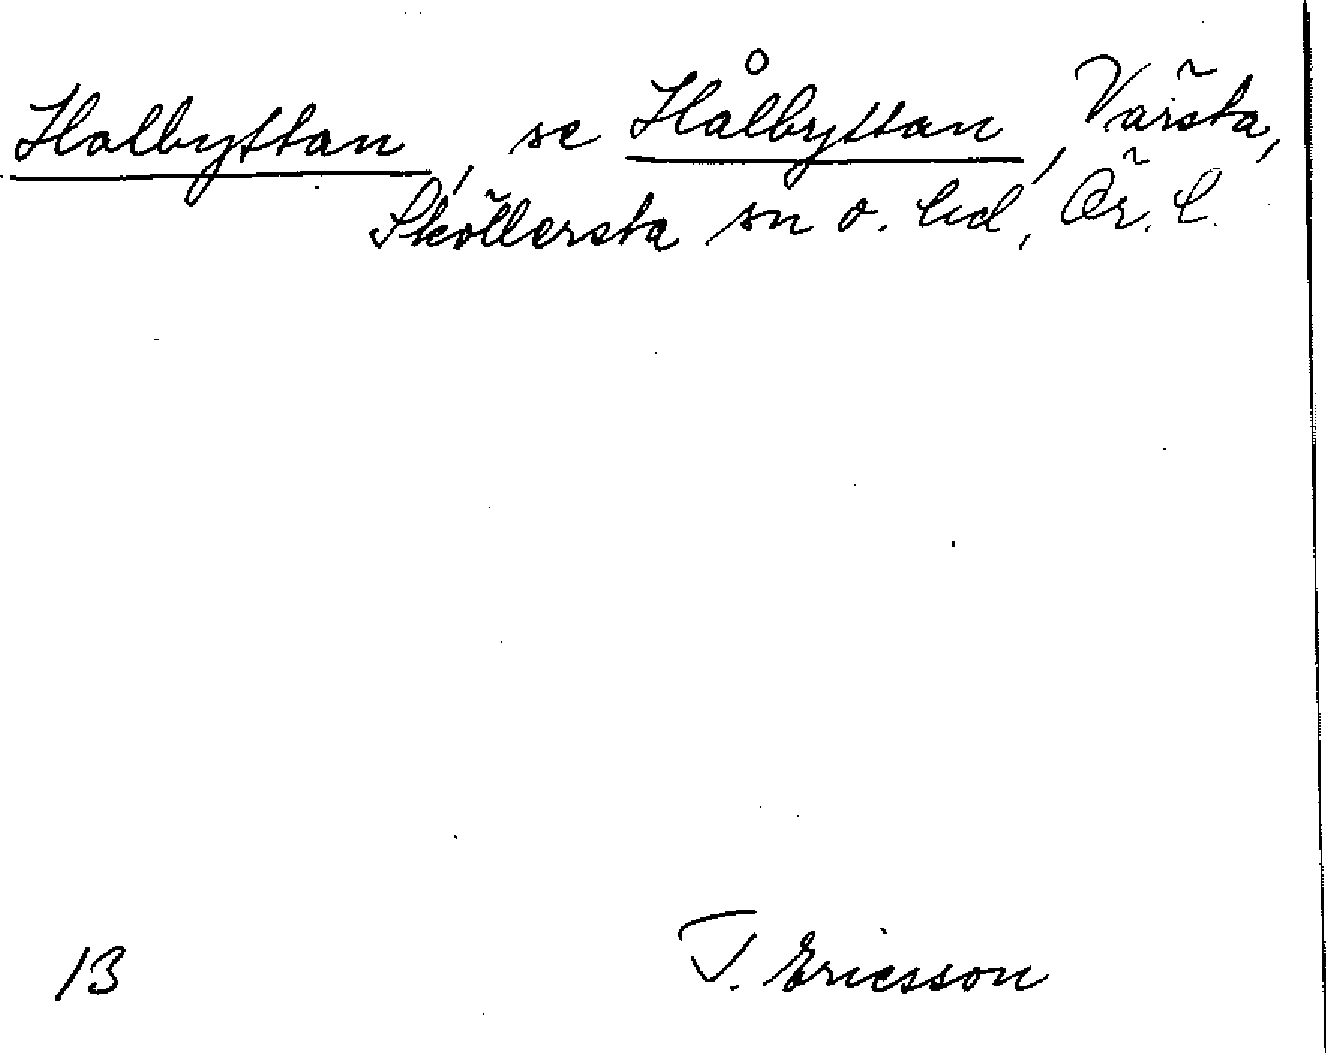 Holbyttan, se Hålbyttan, Värsta,
Sköllersta sn o. hd, Ör. l.
13 T. Ericsson